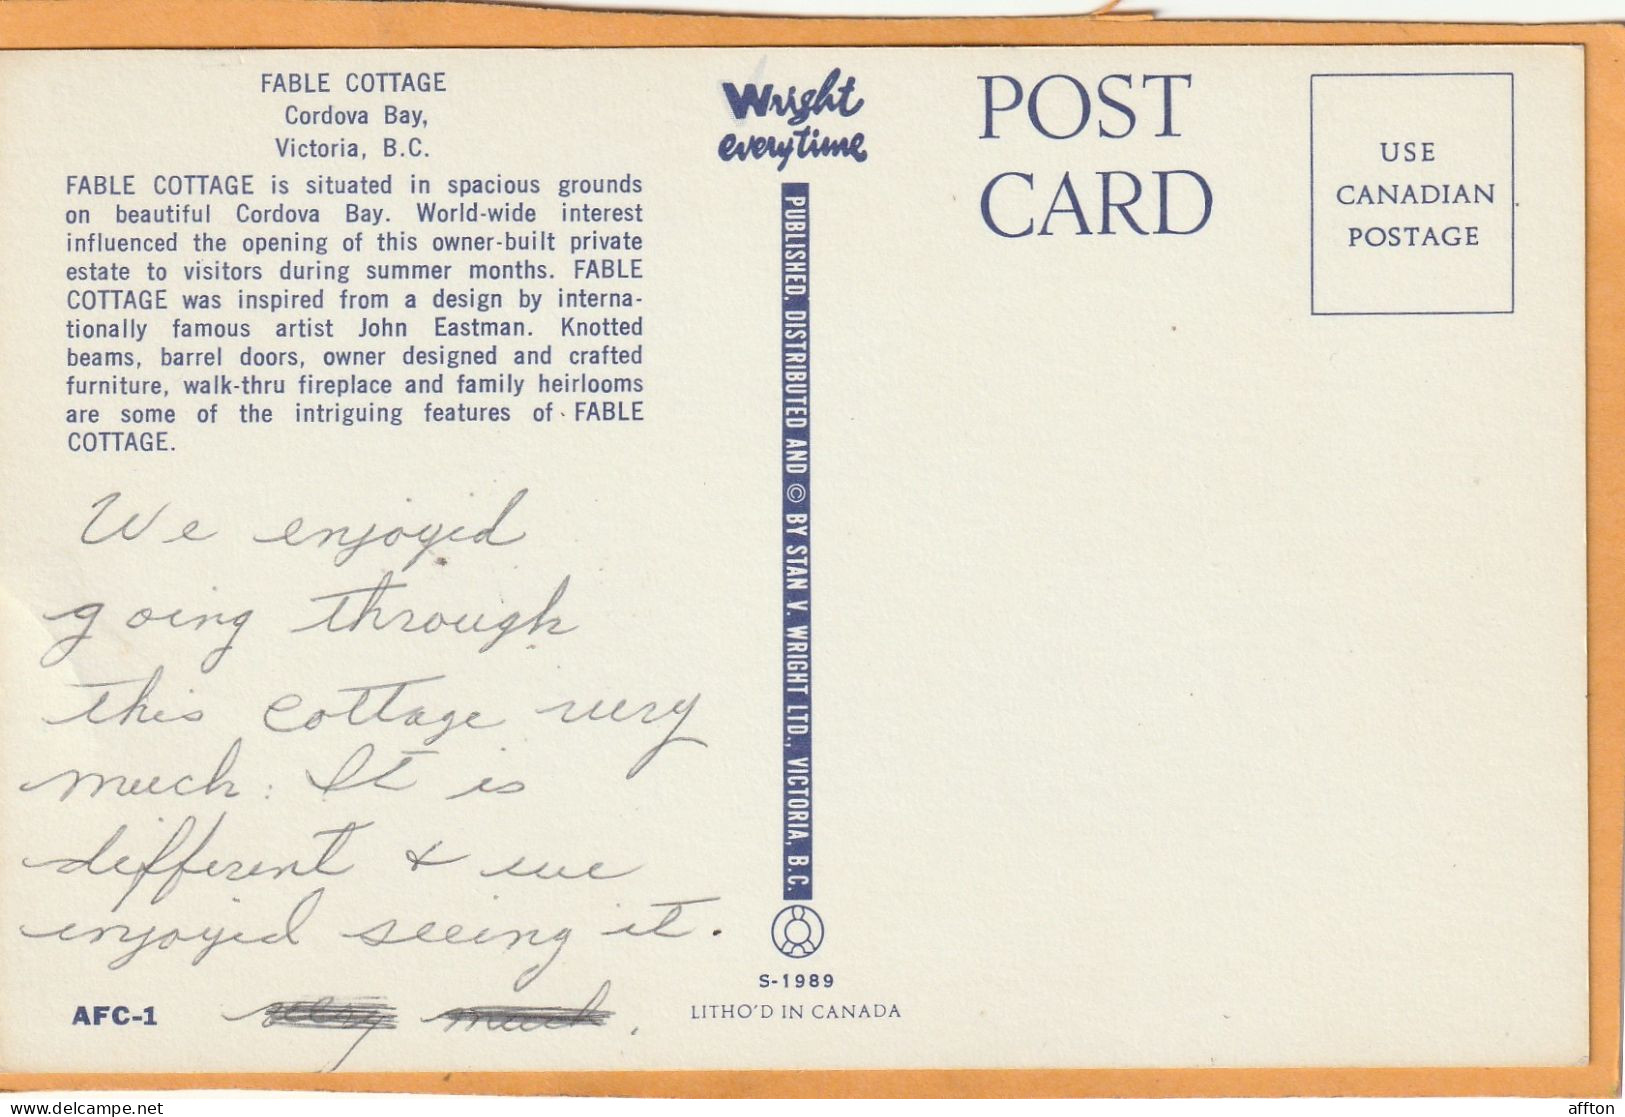 FABLE COTTAGE
Cordova Bay,
Victoria, B.C.
FABLE COTTAGE is situated in spacious grounds
on beautiful Cordova Bay. World-wide interest
influenced the opening of this owner-built private
estate to visitors during summer months. FABLE
COTTAGE was inspired from a design by interna-
tionally famous artist John Eastman. Knotted
beams, barrel doors, owner designed and crafted
furniture, walk-thru fireplace and family heirlooms
are some of the intriguing features of FABLE
COTTAGE.
We enjoyed
going through
this cottage very
much. It is
different & we
enjoyed seeing it.
very much.
AFC-1
Wright
everytime
PUBLISHED, DISTRIBUTED AND © BY STAN V. WRIGHT LTD., VICTORIA, B.C.
S-1989
LITHO'D IN CANADA
POST
CARD
USE
CANADIAN
POSTAGE
delcampe.net
affton